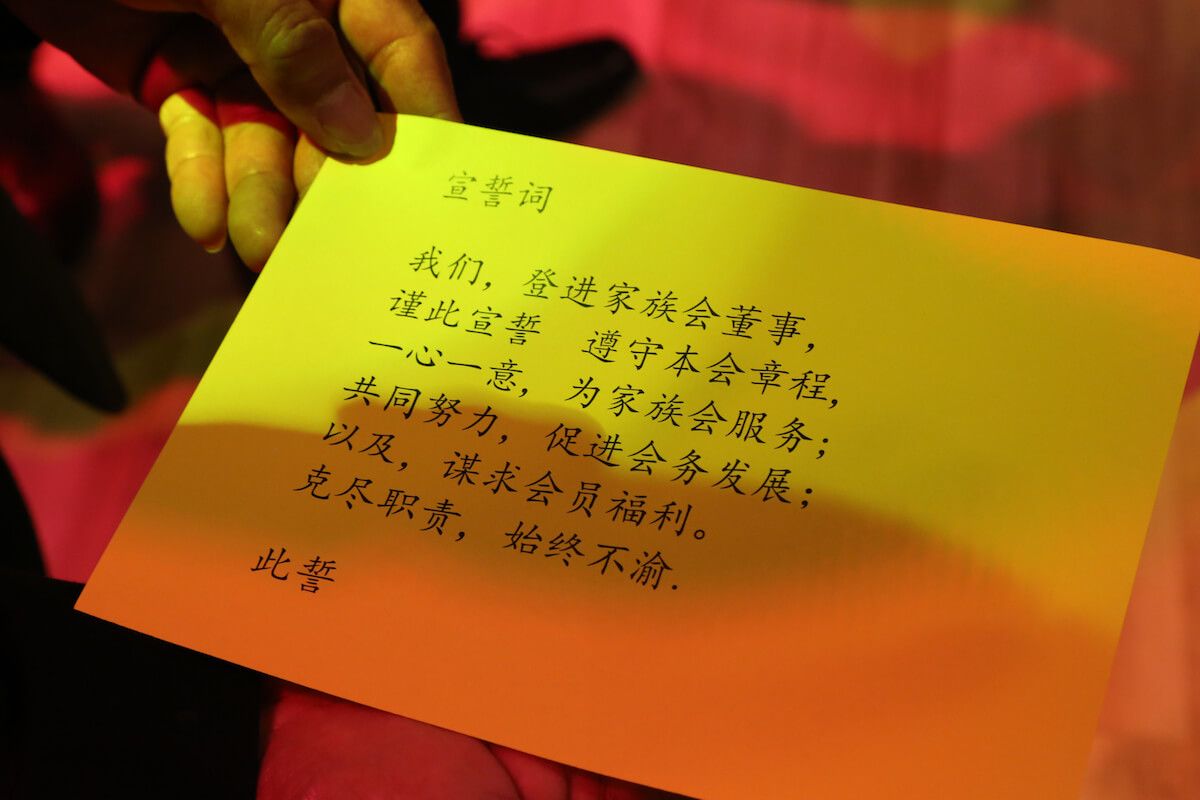 宣誓词
我们，登进家族会董事，
谨此宣誓　遵守本会章程，
一心一意，为家族会服务；
共同努力，促进会务发展；
以及，谋求会员福利。
克尽职责，始终不渝.
此誓